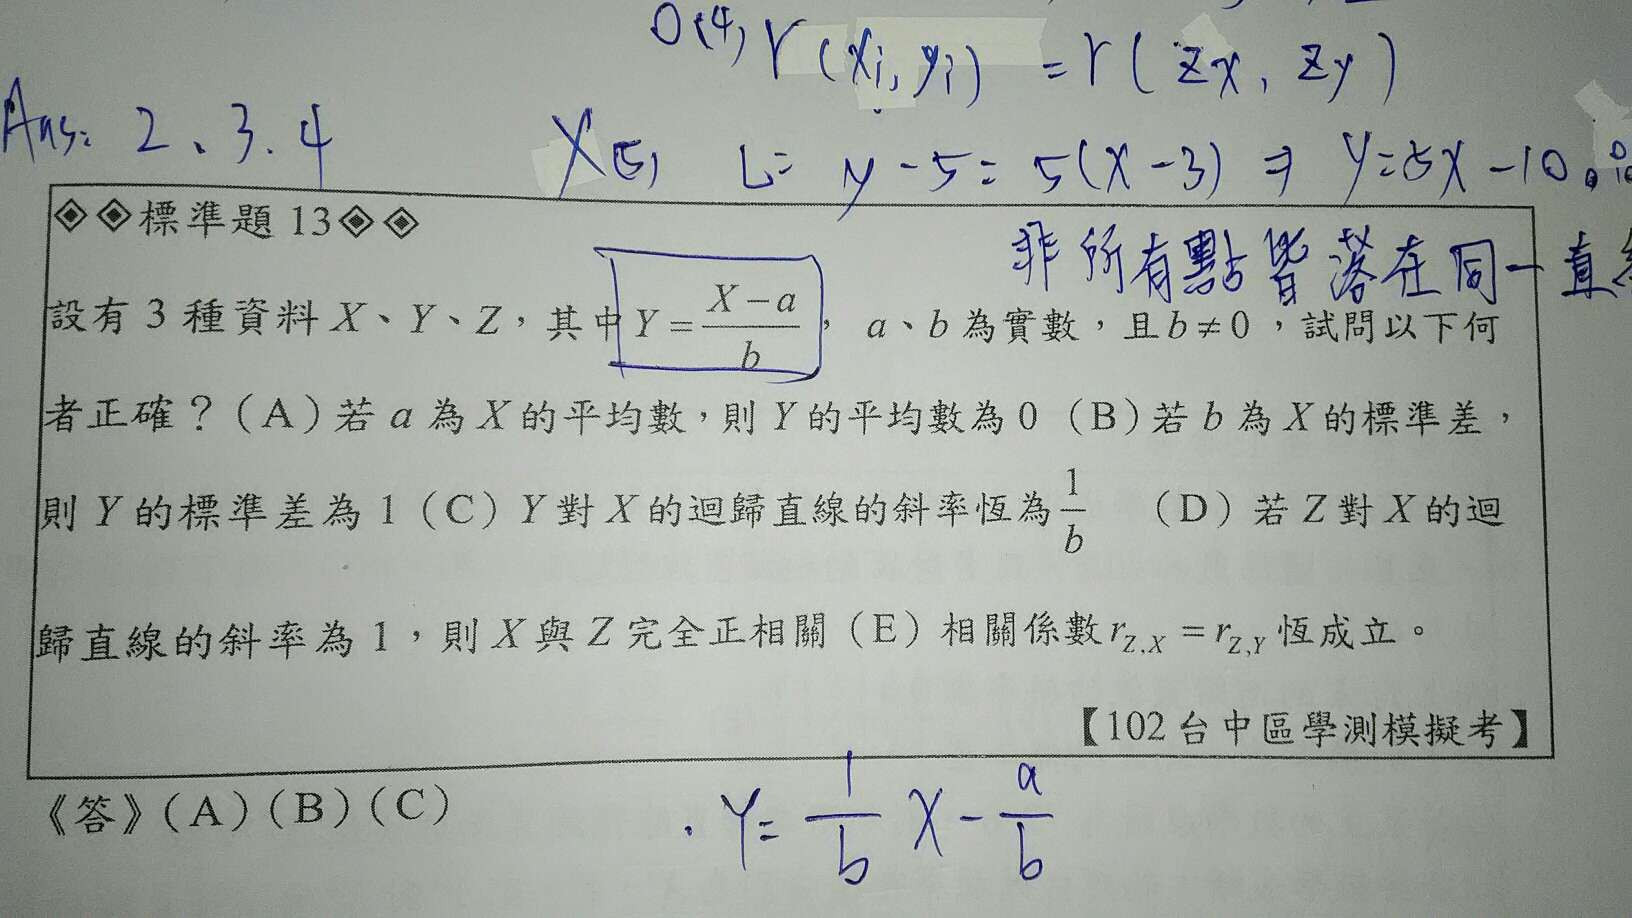 0(4) r(xi, yi) = r(zx, zy)
Ans: 2、3.4
X(5) L= y-5=5(x-3) ⇒ y=5x-10。
◈◈標準題 13◈◈
非所有點皆落在同一直
設有 3 種資料 X、Y、Z，其中 Y = (X-a)/b ， a、b 為實數，且 b≠0 ，試問以下何
者正確？（A）若 a 為 X 的平均數，則 Y 的平均數為 0（B）若 b 為 X 的標準差，
則 Y 的標準差為 1（C）Y 對 X 的迴歸直線的斜率恆為 1/b （D）若 Z 對 X 的迴
歸直線的斜率為 1，則 X 與 Z 完全正相關（E）相關係數 r_{Z,X} = r_{Z,Y} 恆成立。
【102 台中區學測模擬考】
《答》（A）（B）（C）
. Y= 1/b X - a/b